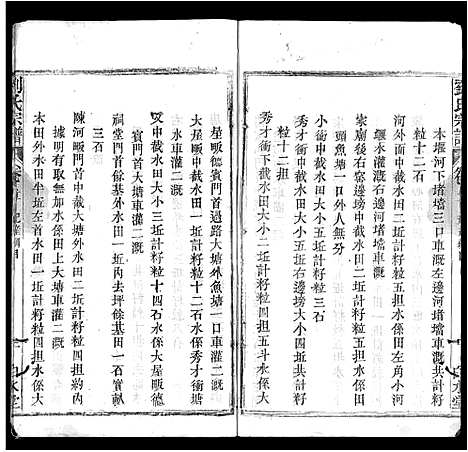 劉氏宗譜
本堰河下堵墻三口車溉左邊河堵墻車溉共
粒十二石
河外面中截水田大小三坵計籽粒四担水係田左角小河
堰水灌溉右邊河堵壋車溉
家廟後右窊邊塝中截水田大小四坵計籽粒五担水係大
頭魚塘一口外人無分
小衖中截水田大小二坵計籽粒三石
秀才衖下截水田大小五坵右邊塝大小四坵水田共計籽
粒十二担
劉氏宗譜
星畈德賓門首過路大塘外魚塘一口車灌二溉
大屋畈中截水田大小三坵計籽粒十二石水係秀才衖塘
水車灌二溉
又中截水田大小三坵計籽粒十四石水係大屋畈德
賓門首大塘車灌二溉
祠堂門首餘基外水田一坵內去坪餘基田一石實載
三石
陳河畈中截大塘外水田二坵計籽粒四担水係大
據明有契無加水係田上大塘車灌二溉
木田外水田半坵左首水田一坵計籽粒四担水係大